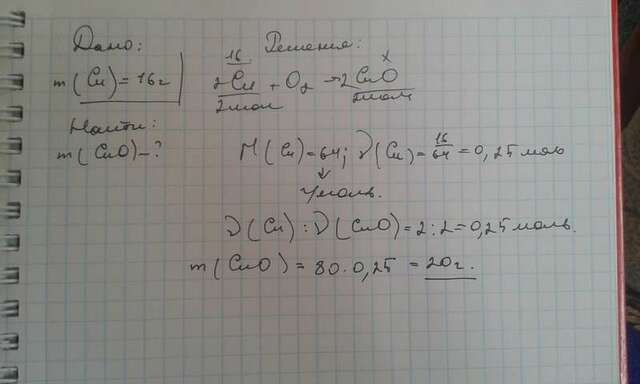 Дано:
m(Cu)=16г
Найти:
m(CuO)-?
Решение:
16 x
2Cu + O2 → 2CuO
2моль 2моль
M(Cu)=64; ν(Cu)=16/64=0,25 моль
ν(Cu):ν(CuO)=2:2=0,25 моль.
m(CuO)=80·0,25=20г.